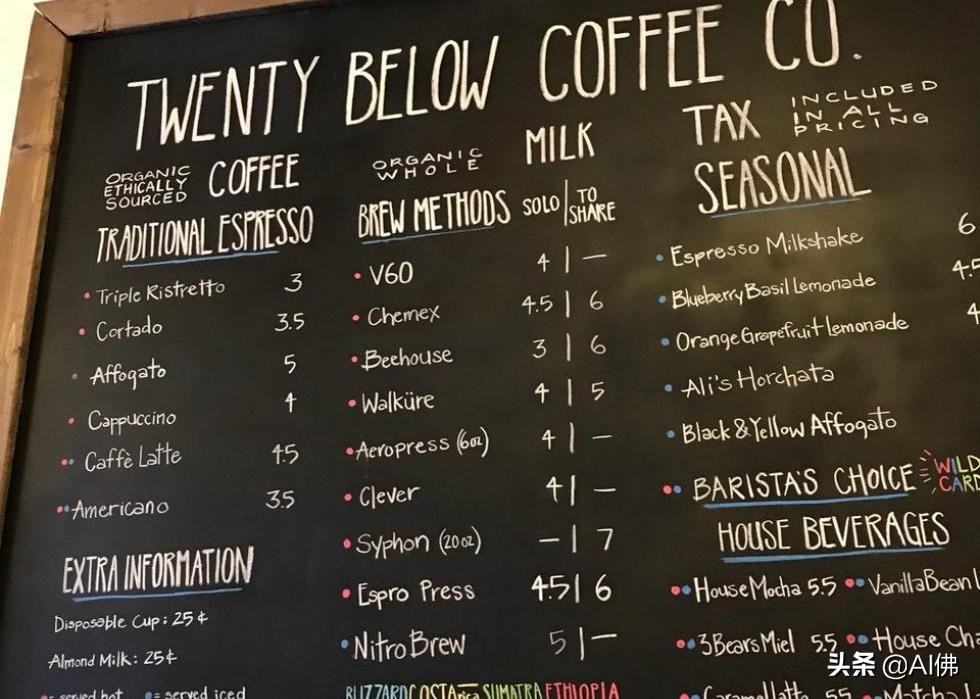 TWENTY BELOW COFFEE CO.
ORGANIC ETHICALLY SOURCED COFFEE
TRADITIONAL ESPRESSO
Triple Ristretto 3
Cortado 3.5
Affogato 5
Cappuccino 4
Caffè Latte 4.5
Americano 3.5
EXTRA INFORMATION
Disposable Cup: 25¢
Almond Milk: 25¢
= served hot = served iced
ORGANIC WHOLE MILK
BREW METHODS SOLO | TO SHARE
V60 4 | —
Chemex 4.5 | 6
Beehouse 3 | 6
Walküre 4 | 5
Aeropress (6oz) 4 | —
Clever 4 | —
Syphon (20oz) — | 7
Espro Press 4.5 | 6
Nitro Brew 5 | —
BLIZZARD COSTA rica SUMATRA ETHIOPIA
TAX INCLUDED IN ALL PRICING
SEASONAL
Espresso Milkshake 6
Blueberry Basil Lemonade 4.5
Orange Grapefruit Lemonade 4
Ali's Horchata
Black & Yellow Affogato
BARISTA'S CHOICE WILD CARD
HOUSE BEVERAGES
House Mocha 5.5 Vanilla Bean
3 Bears Miel 5.5 House
头条 @AI佛